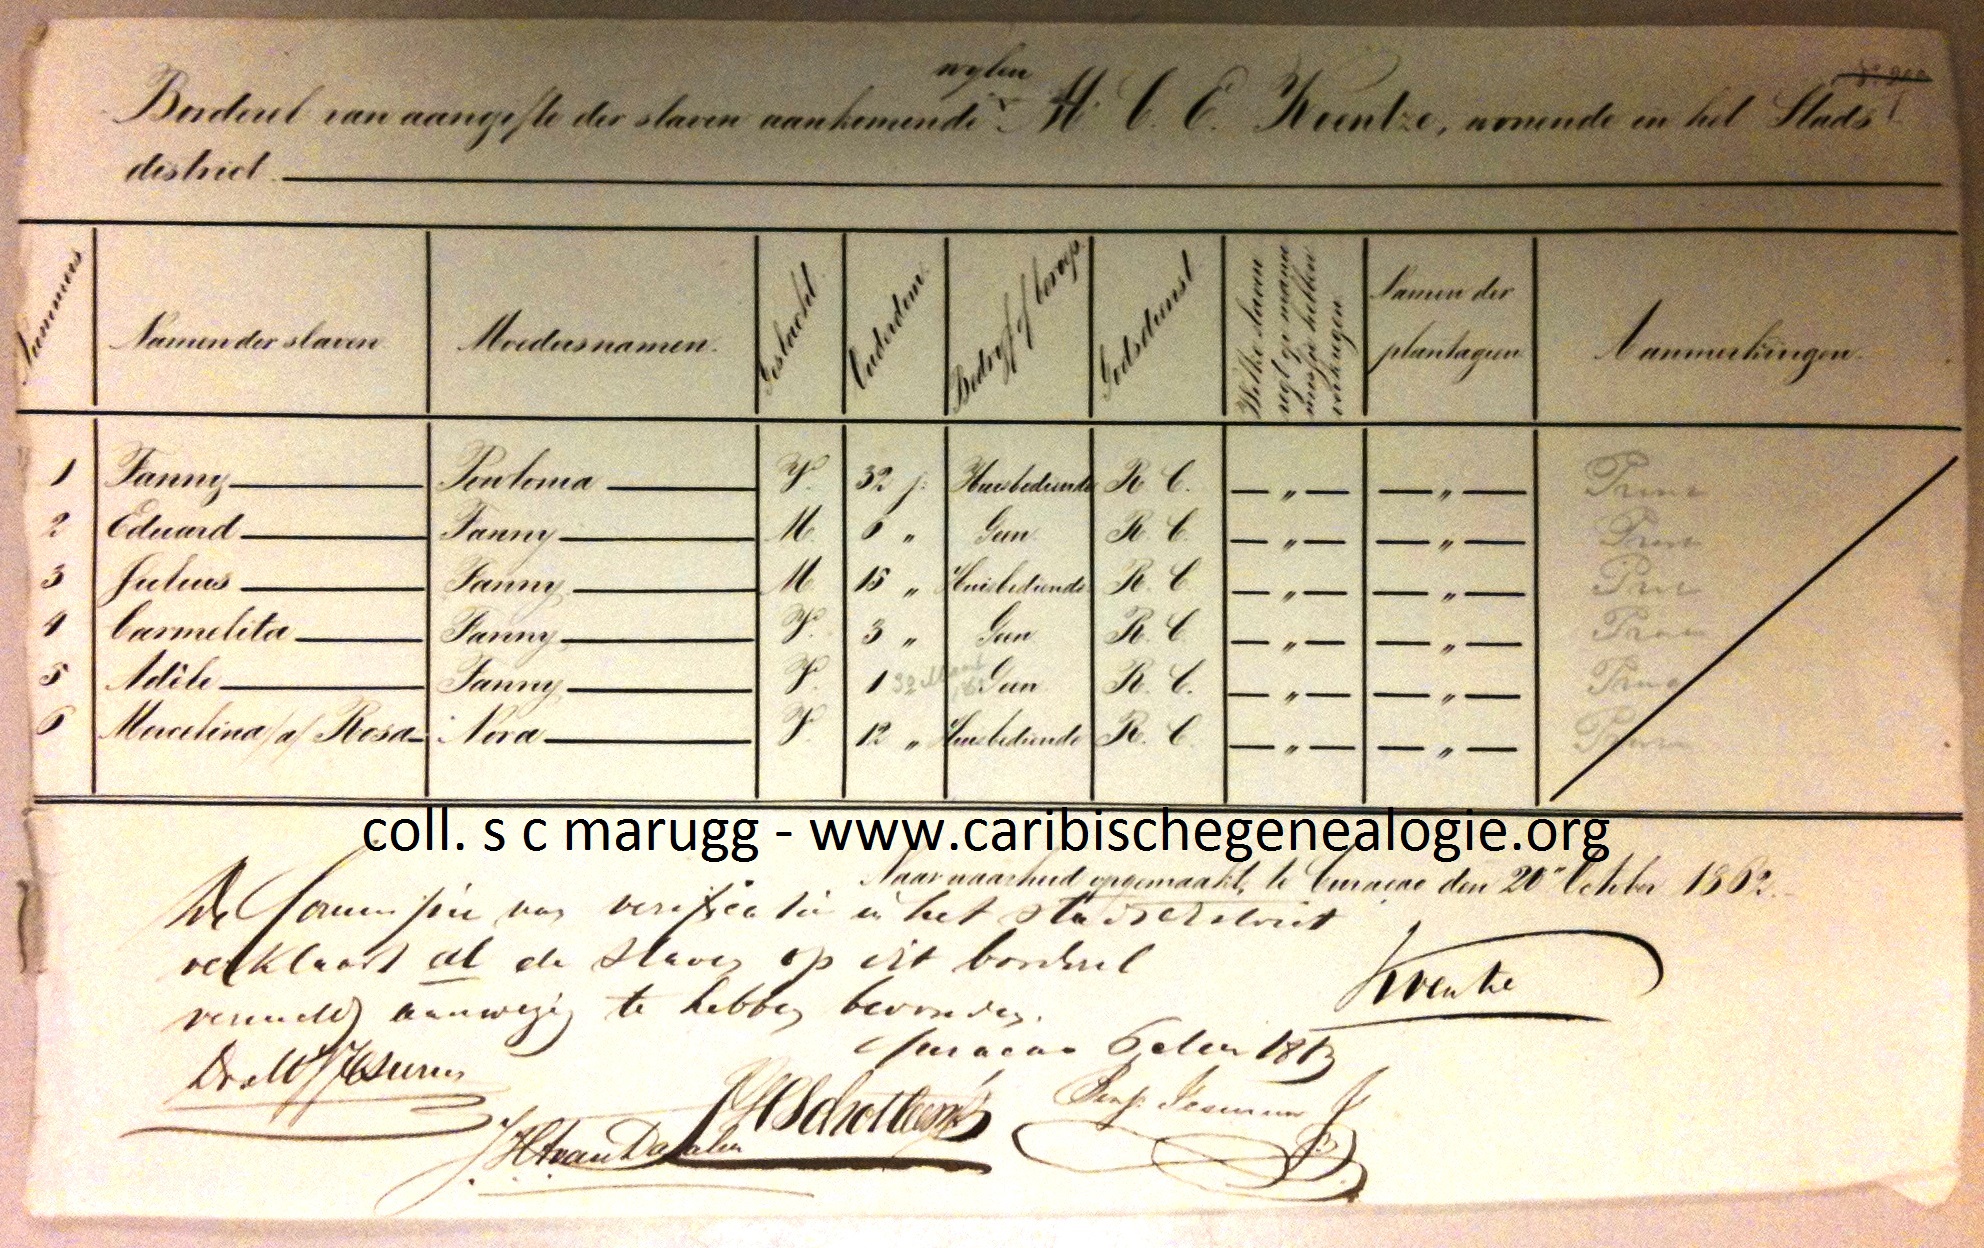 wylen
Borderel van aangifte der slaven aankomende M. C. E. Kventze, wonende in het Stads
district
Nummers Namen der slaven Moedersnamen. Geslacht Ouderdom Bedrijf of beroep Godsdienst Welke slaven regt op manumissie hebben verkregen Namen der plantagien Aanmerkingen.
1 Fanny Pouloma V. 32 j: Huisbediende R. C. — „ — — „ —
2 Eduard Fanny M 6 „ Geen R. C. — „ — — „ —
3 Julius Fanny M 15 „ Huisbediende R. C. — „ — — „ —
4 Carmelita Fanny V. 3 „ Geen R. C. — „ — — „ —
5 Adèle Fanny V. 1 Geen R. C. — „ — — „ —
6 Mercelina /a/ Rosa Nora V. 12 „ Huisbediende R. C. — „ — — „ —
coll. s c marugg - www.caribischegenealogie.org
Naar waarheid opgemaakt, te Curacao den 20n October 1862.
De Commissie van verificatie in het stadsdistrict
verklaart al de slaven op dit borderel
vermeld, aanwezig te hebben bevonden.
Kventze
Curacao 1863
Jesurun
van Dalen
Schotborgh
Benj. Jesurun